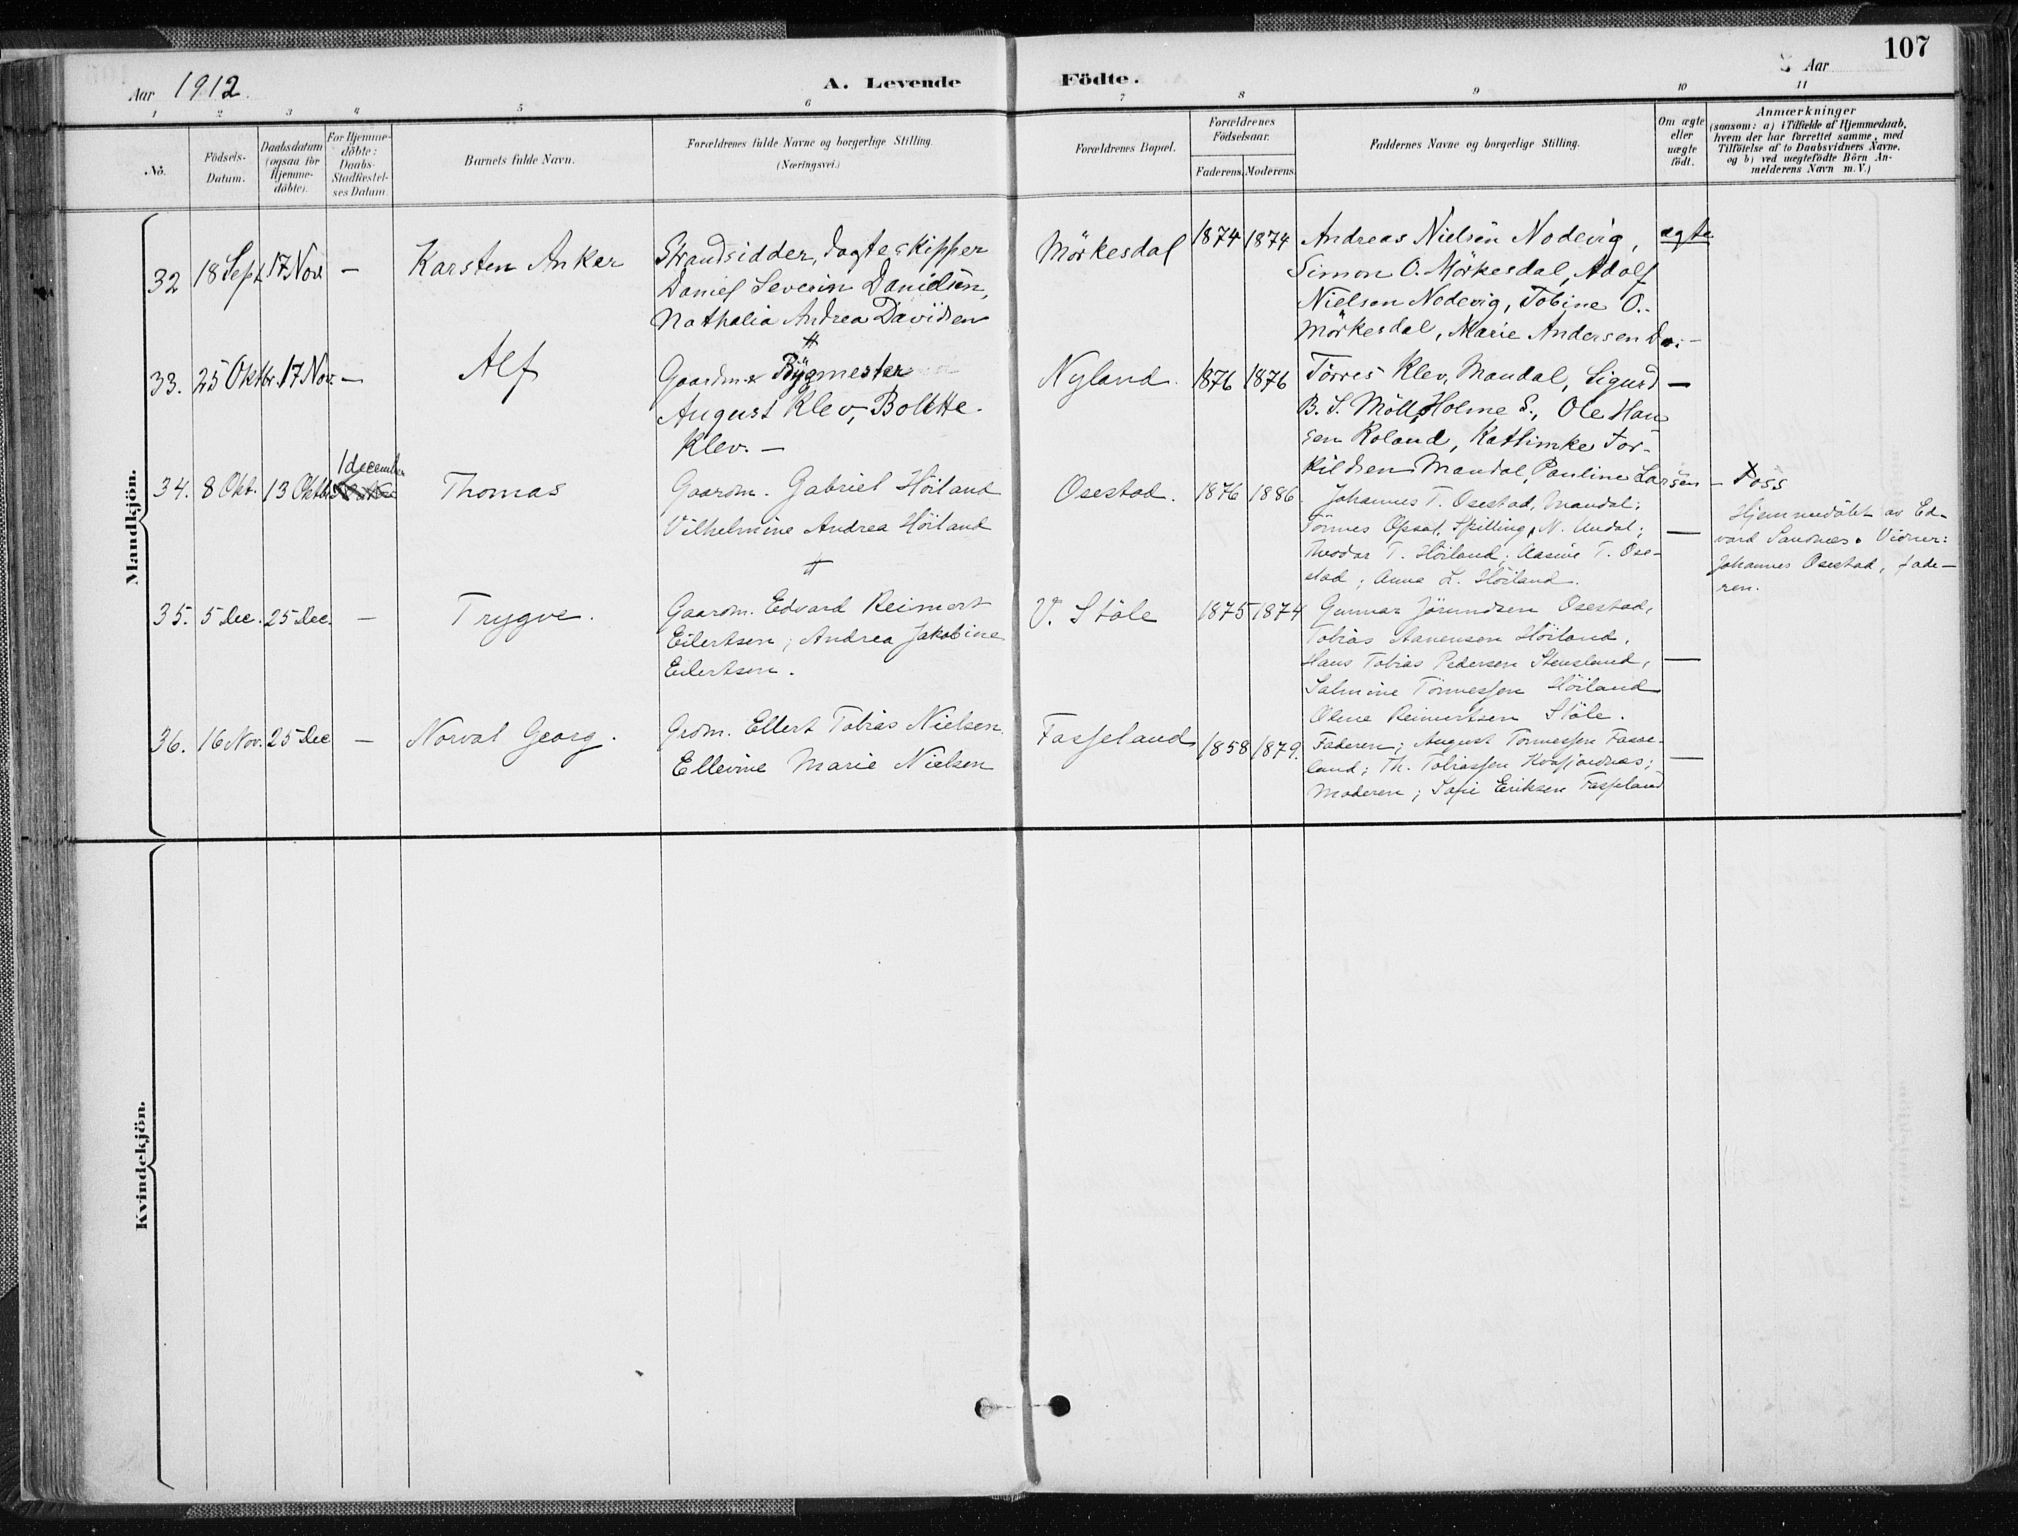 107
Aar 1912.
A. Levende Födte.
Aar
1 2 3 4 5 6 7 8 9 10 11
No.
Födsels-
Datum.
Daabsdatum
(ogsaa for
Hjemme-
döbte).
For Hjemme-
döbte:
Daabs-
Stadfæstel-
ses Datum.
Barnets fulde Navn.
Forældrenes fulde Navne og borgerlige Stilling.
(Næringsvei.)
Forældrenes Bopæl.
Forældrenes
Födselsaar.
Faderens. Moderens.
Faddernes Navne og borgerlige Stilling.
Om ægte
eller
uægte
födt.
Anmærkninger
(saasom: a) i Tilfælde af Hjemmedaab,
hvem der har forrettet samme, med
Tilföielse af to Daabsvidners Navne,
og b) ved uægtefödte Börn An-
melderens Navn m. V.)
Mandkjön.
32 18 Sept. 17 Nov. – Karsten Anker
Strandsidder, Jagteskipper
Daniel Severin Danielsen,
Nathalia Andrea Davidsen
Mörkesdal 1874 1874
Andreas Nielsen Nodevig,
Simon O. Mörkesdal, Adolf
Nielsen Nodevig, Tobine O.
Mörkesdal, Marie Andersen Do. –
ægte
33. 25 Oktbr. 17 Nov. – Alf
Gaardm. Bÿgmester
August Klev, Bolette
Klev. –
Nyland. 1876 1876
Törres Klev, Mandal, Sigurd
B. S. Möll, Holme S., Ole Han
sen Roland, Kathinke Tor-
kildsen Mandal, Pauline Larsen
–
Foss
34. 8 Okt. 13 Oktbr. 1 december Thomas
Gaardm. Gabriel Höiland
Vilhelmine Andrea Höiland
Osestad. 1876 1886.
Johannes T. Osestad, Mandal;
Tönnes Opsal, Spilling, N. Undal;
Theodor T. Höiland; Aasine T. Ose-
stad; Anna L. Höiland.
—
Hjemmedöbt av Ed-
vard Sandnes. Vidner:
Johannes Osestad, fade-
ren.
35. 5 Dec. 25 Dec. – Trygve.
Gaardm. Edvard Reimert
Eilertsen; Andrea Jakobine
Eilertsen.
V. Stöle 1875 1874
Gunnar Jörundsen Osestad,
Tobias Aanensen Höiland,
Hans Tobias Pedersen Stensland,
Salmine Tönnessen Höiland
Oline Reimertsen Stöle.
—
36. 16 Nov. 25 Dec – Norval Georg.
Grdm. Ellert Tobias Nielsen
Ellevine Marie Nielsen
Fasseland 1858 1879.
Faderen; August Tönnessen Fasse-
land; Th. Tobiassen Kvisfjordnes;
Moderen; Sofie Eriksen Fasseland
—
Kvindekjön.